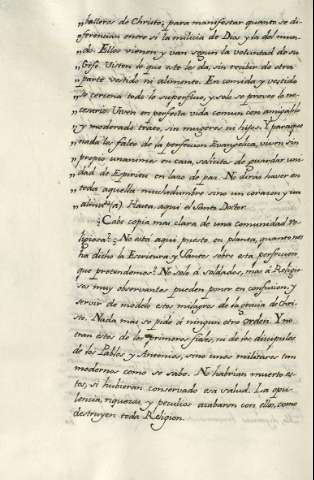 „balleros de Christo; para manifestar quanto se di-
„ferencian entre si la milicia de Dios, y la del mun-
„do. Ellos vienen y van segun la voluntad de su
„Gefe. Visten lo que este les da, sin recibir de otra
„parte vestido ni alimento. En comida y vestido
„se cercena todo lo superfluo, y solo se provee lo ne-
„cesario. Viven en perfecta vida comun con amigable
„y moderado trato, sin mugeres ni hijos. Y para que
„nada les falte de la perfeccion Evangelica, viven sin
„propio unanimes en casa, solicitos de guardar uni-
„dad de Espiritu en lazo de paz. No dirás haver en
„toda aquella muchedumbre sino un corazon y un
„alma“(a). Hasta aqui el Santo Doctor.
¿Cabe copia mas clara de una comunidad re-
ligiosa? ¿No está aqui puesto en planta, quanto nos
ha dicho la Escritura y Santos sobre esta perfeccion
que pretendemos? No solo á soldados, mas á Religio-
sos muy observantes pueden poner en confusion, y
servir de modelo estos milagros de la gracia de Chri-
sto. Nada mas se pide á ningun otro Orden. Y no
eran estos de los primeros fieles, ni de los discipulos
de los Pablos y Antonios, sino unos militares tan
modernos como se sabe. No habrian muerto es-
tos, si hubieran conservado esa salud. La opu-
lencia, riquezas, y peculios acabaron con ellos, como
destruyen toda Religion.